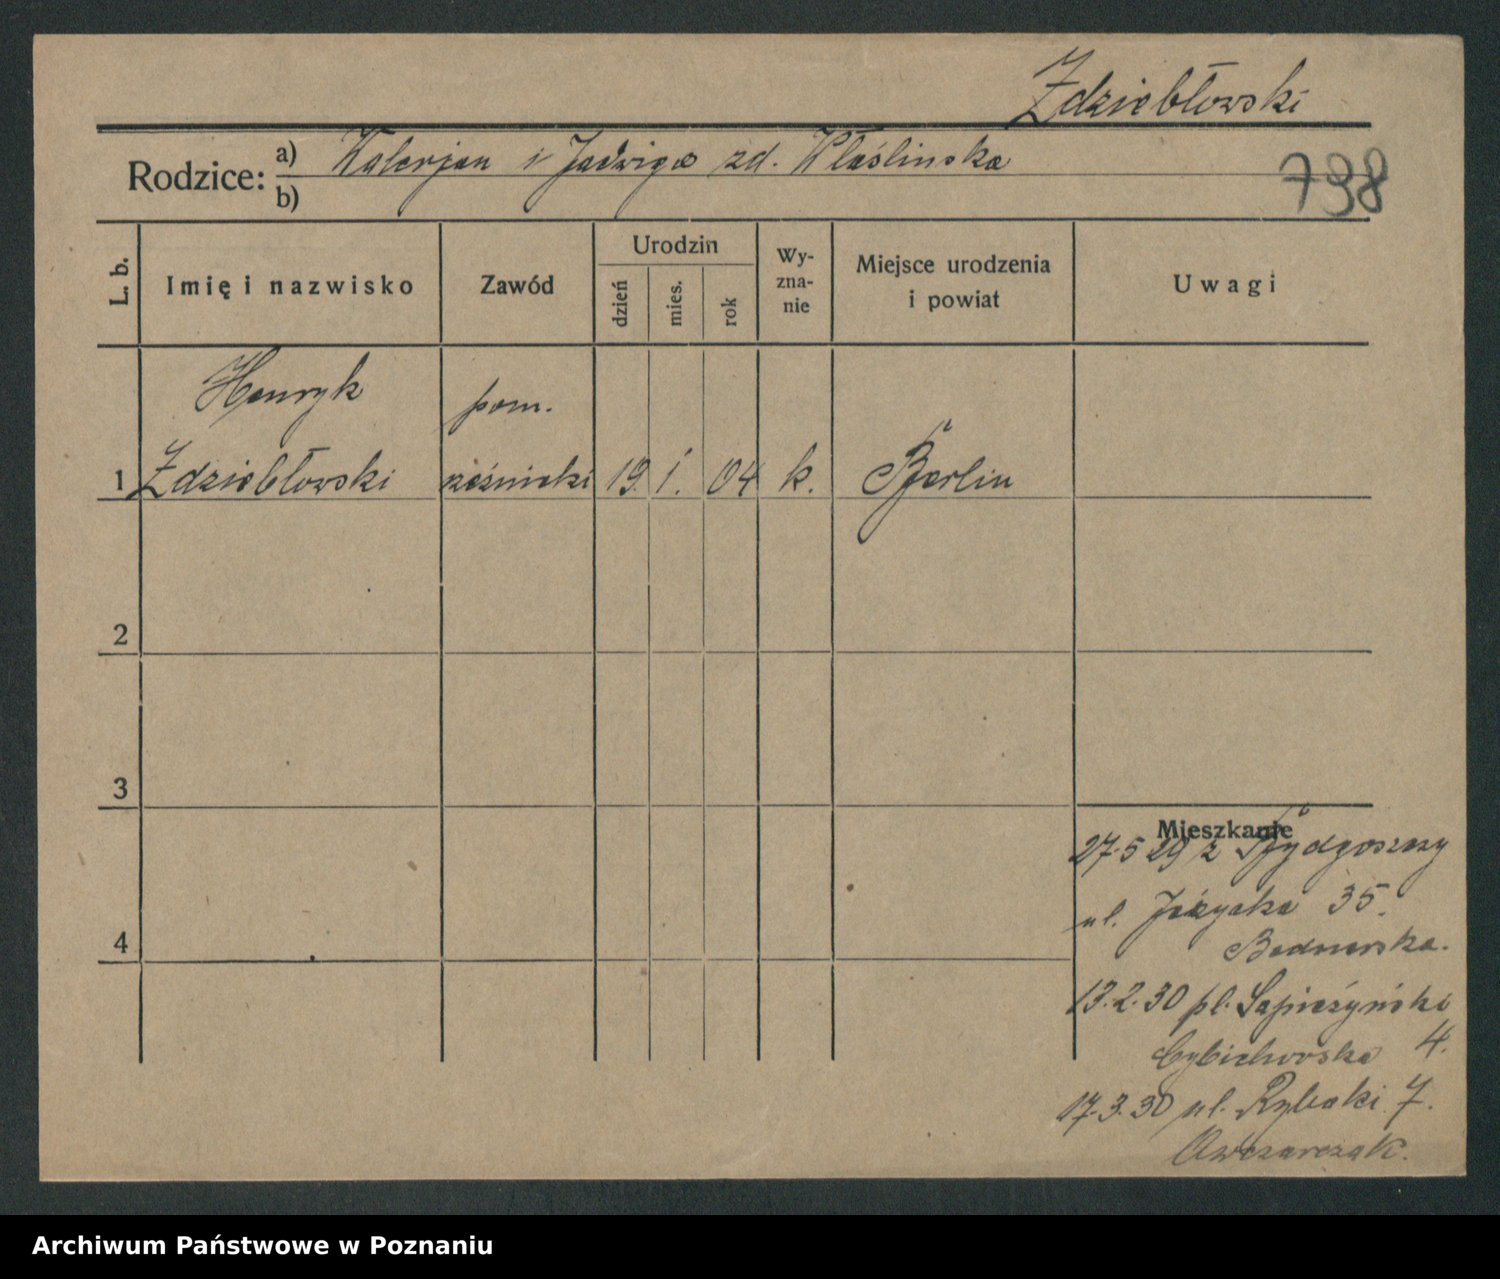 Zdziebłowski
Rodzice: a) Walerjan i Jadwiga zd. Kłaślinska
b)
798
L. b. Imię i nazwisko Zawód Urodzin dzień mies. rok Wy-zna-nie Miejsce urodzenia i powiat Uwagi
Henryk pom.
1 Zdziebłowski rzeźnicki 19. 1. 04 k. Berlin
2
3
Mieszkanie
27.5 29 z Bydgoszczy
4
ul. Jeżycka 35.
Bednarska.
13.2.30 pl. Sapieżyński
4.
17.3.30 ul. Rybaki 7.
Owczarczak.
Archiwum Państwowe w Poznaniu